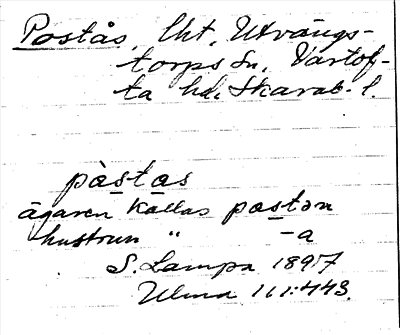 Postås, lht, Utvängs-
torps sn, Vartof-
ta hd, Skarab. l.
pàstas
ägaren kallas pastən
hustrun " -a
S. Lampa 1897
Ulma 161:443.